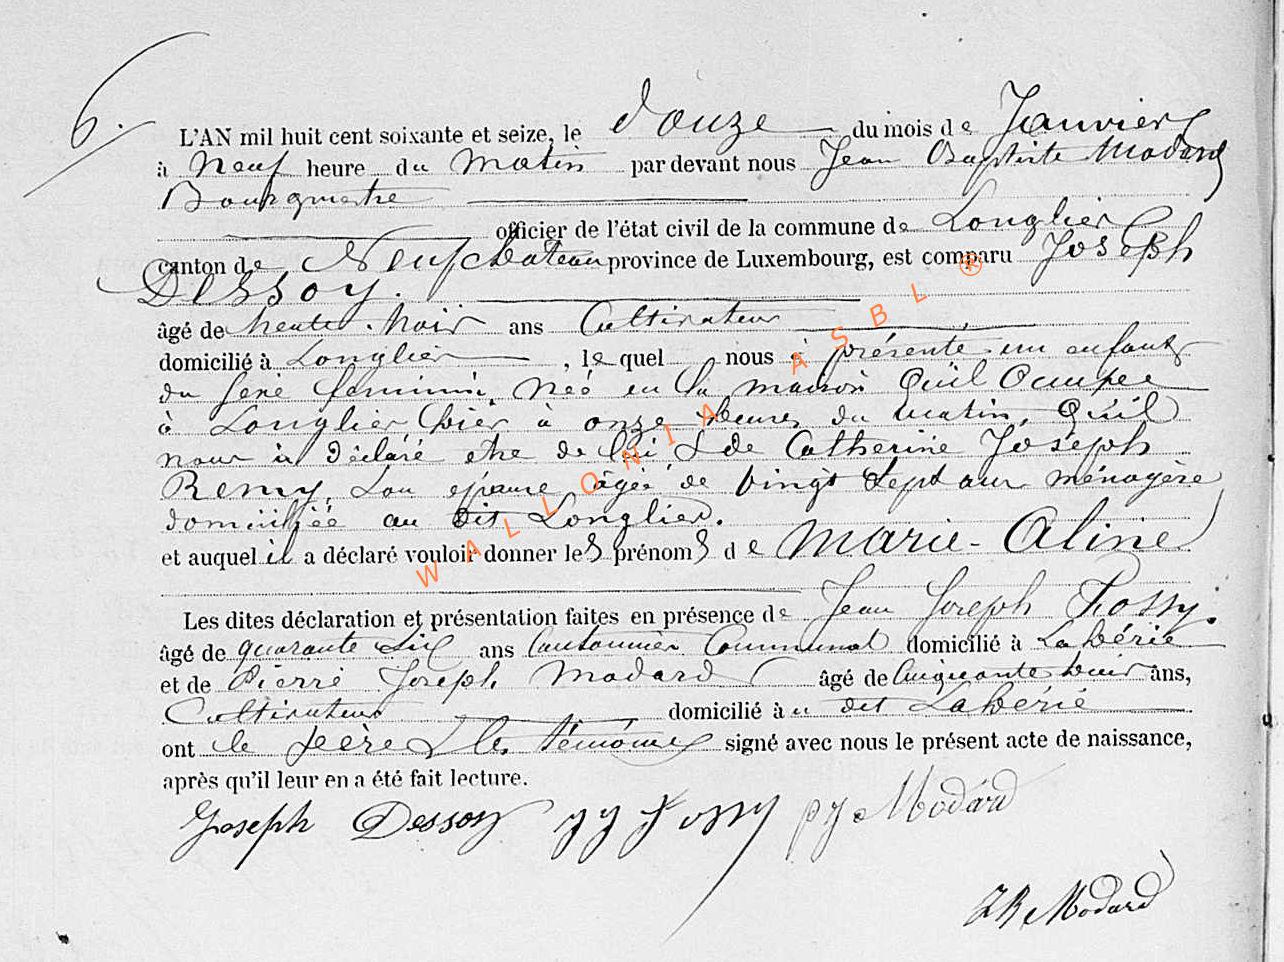 6.
L'AN mil huit cent soixante et seize, le douze du mois de Janvier
à Neuf heure du Matin par devant nous Jean Baptiste Modard
Bourgmestre
officier de l'état civil de la commune de Longlier
canton de Neufchateau province de Luxembourg, est comparu Joseph
Dessoy.
âgé de trente trois ans Cultivateur
domicilié à Longlier, le quel nous a présenté un enfant
du sexe feminin, Née en la maison Qu'il Occupee
à Longlier hier à onze heures du matin, Qu'il
nous à déclaré etre de lui & de Catherine Joseph
Remy, son epouse âgée de vingt Sept ans ménagère
domiciliée au dit Longlier.
et auquel il a déclaré vouloir donner les prénoms de Marie-Aline
Les dites déclaration et présentation faites en présence de Jean Joseph Fossy.
âgé de quarante Six ans Cantonnier Communal domicilié à La hérie
et de Pierre Joseph Modard âgé de Cinquante huit ans,
Cultivateur domicilié à u dit Lahérie
ont le père & les témoins signé avec nous le présent acte de naissance,
après qu'il leur en a été fait lecture.
Joseph Dessoy JJ Fossy PJ Modard
JB Modard
WALLONIA ASBL ®